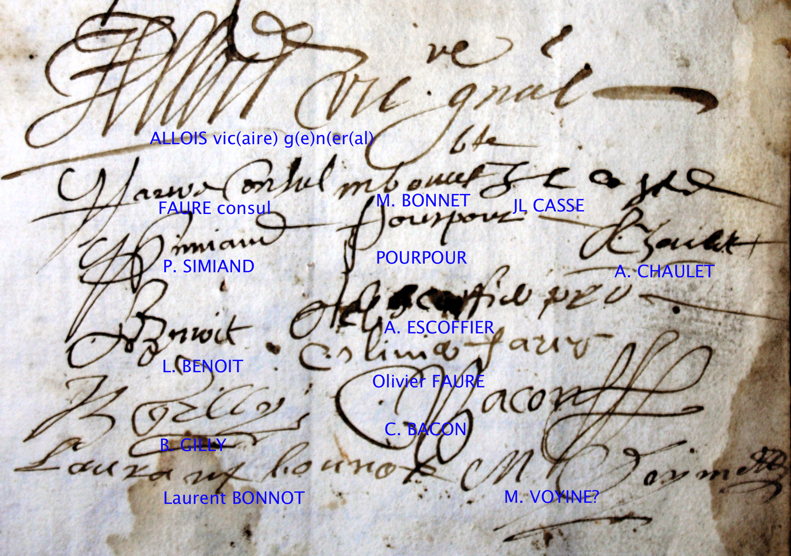 Allois vic. gnâl
ALLOIS vic(aire) g(e)n(er)al)
faure Consul m bonnet JL casse
FAURE consul M. BONNET JL CASSE
P Simiand pourpour A Chaulet
P. SIMIAND POURPOUR A. CHAULET
L Benoit A escoffier
L. BENOIT A. ESCOFFIER
olivier faure
Olivier FAURE
B gilly C Bacon
B. GILLY C. BACON
Laurans bonnot M
Laurent BONNOT M. VOYINE?